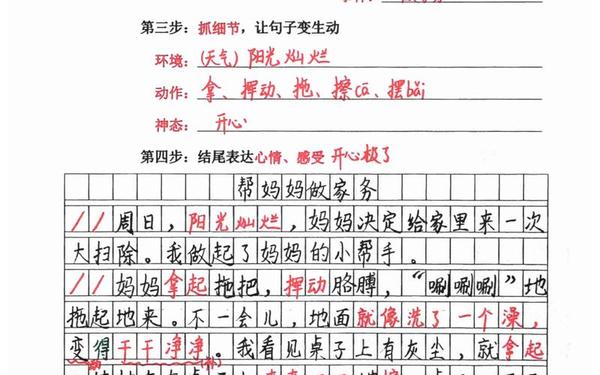 第三步：抓细节，让句子变生动
环境：(天气) 阳光灿烂
动作：拿、挥动、拖、擦cā、摆bǎi
神态：开心
第四步：结尾表达心情、感受 开心极了
帮妈妈做家务
//周日，阳光灿烂，妈妈决定给家里来一次
大扫除。我做起了妈妈的小帮手。
//妈妈拿起拖把，挥动胳膊，“唰唰唰”地
拖起地来。不一会儿，地面就像洗了一个澡，
变得干干净净。我看见桌子上有灰尘，就拿起